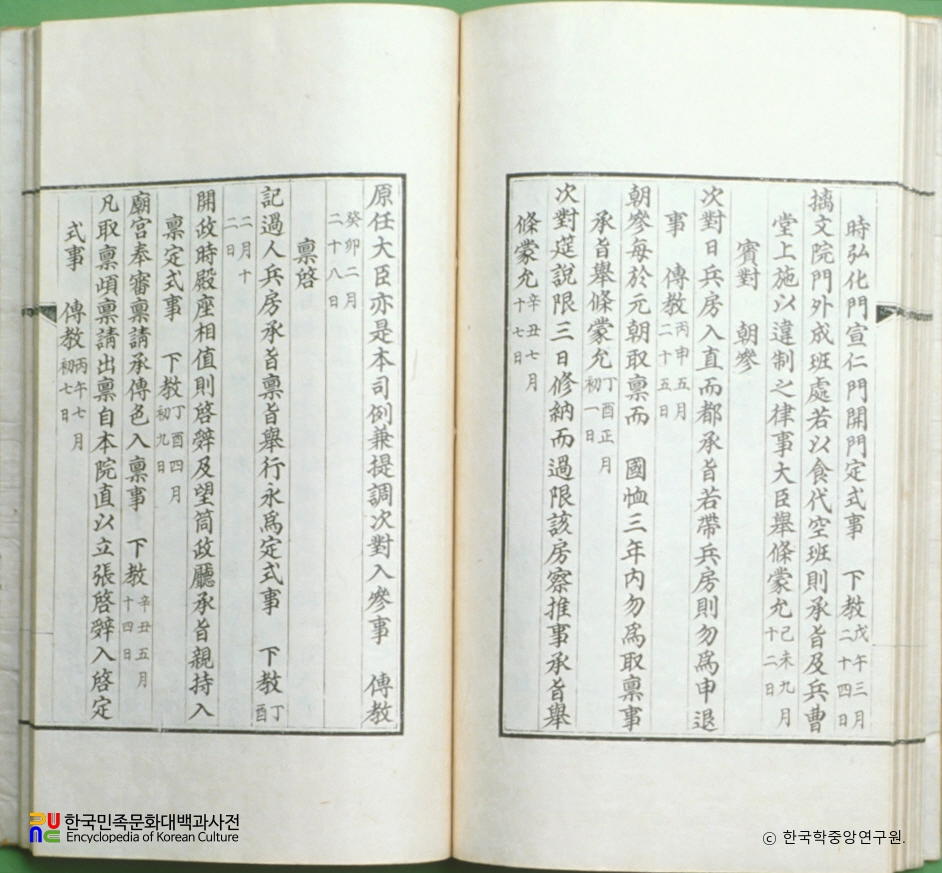 時弘化門宣仁門開門定式事 下教戊午三月二十四日
摛文院門外成班處若以食代空班則承旨及兵曹
堂上施以違制之律事大臣舉條蒙允己未九月十二日
賓對 朝參
次對日兵房入直而都承旨若帶兵房則勿爲申退
事 傳教丙申五月二十五日
朝參每於元朝取稟而 國恤三年內勿爲取稟事
承旨舉條蒙允丁酉正月初一日
次對筵說限三日修納而過限該房察推事承旨舉
條蒙允辛丑七月十七日
原任大臣亦是本司例兼提調次對入參事 傳教
癸卯二月二十八日
稟啓
記過人兵房承旨稟旨舉行永爲定式事 下教丁酉
二月十二日
開政時殿座相值則啓辭及望筒政廳承旨親持入
稟定式事 下教丁酉四月初九日
廟宮奉審稟請承傳色入稟事 下教辛丑五月十四日
凡取稟頉稟請出稟自本院直以立張啓辭入啓定
式事 傳教丙午七月初七日
한국민족문화대백과사전
Encyclopedia of Korean Culture
ⓒ 한국학중앙연구원.